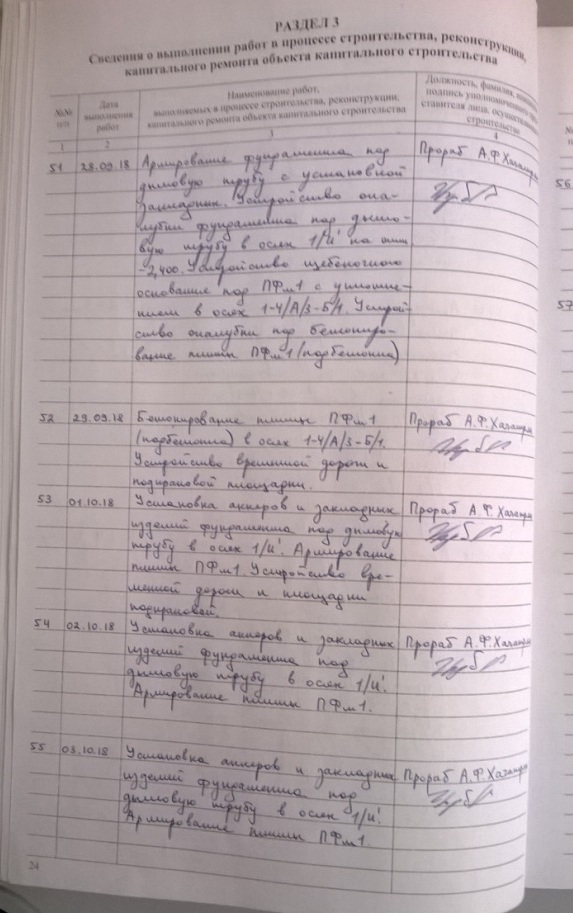 РАЗДЕЛ 3
Сведения о выполнении работ в процессе строительства, реконструкции,
капитального ремонта объекта капитального строительства
№№ п/п
Дата выполнения работ
Наименование работ,
выполняемых в процессе строительства, реконструкции,
капитального ремонта объекта капитального строительства
Должность, фамилия,
подпись уполномоченного
ставителя лица, осуществ
строительство
1 2 3 4
51 28.09.18 Армирование фундамента под Прораб А.Ф.
дымовую трубу с установкой
закладных. Устройство опа-
лубки фундамента под дымо-
вую трубу в осях 1/И' на отм
-2,400. Устройство щебеночного
основания под ПФм1 с уплотне-
нием в осях 1-4/А/3-Б/1. Устрой-
ство опалубки под бетониро-
вание плиты ПФм1 (подбетонка)
52 29.09.18 Бетонирование плиты ПФм1 Прораб А.Ф.
(подбетонка) в осях 1-4/А/3-Б/1.
Устройство временной дороги и
подкрановой площадки.
53 01.10.18 Установка анкеров и закладных Прораб А.Ф.
изделий фундамента под дымовую
трубу в осях 1/И'. Армирование
плиты ПФм1. Устройство вре-
менной дороги и площадки
подкрановой.
54 02.10.18 Установка анкеров и закладных Прораб А.Ф.
изделий фундамента под
дымовую трубу в осях 1/И'.
Армирование плиты ПФм1.
55 03.10.18 Установка анкеров и закладных Прораб А.Ф.
изделий фундамента под
дымовую трубу в осях 1/И'.
Армирование плиты ПФм1.
24
56
57